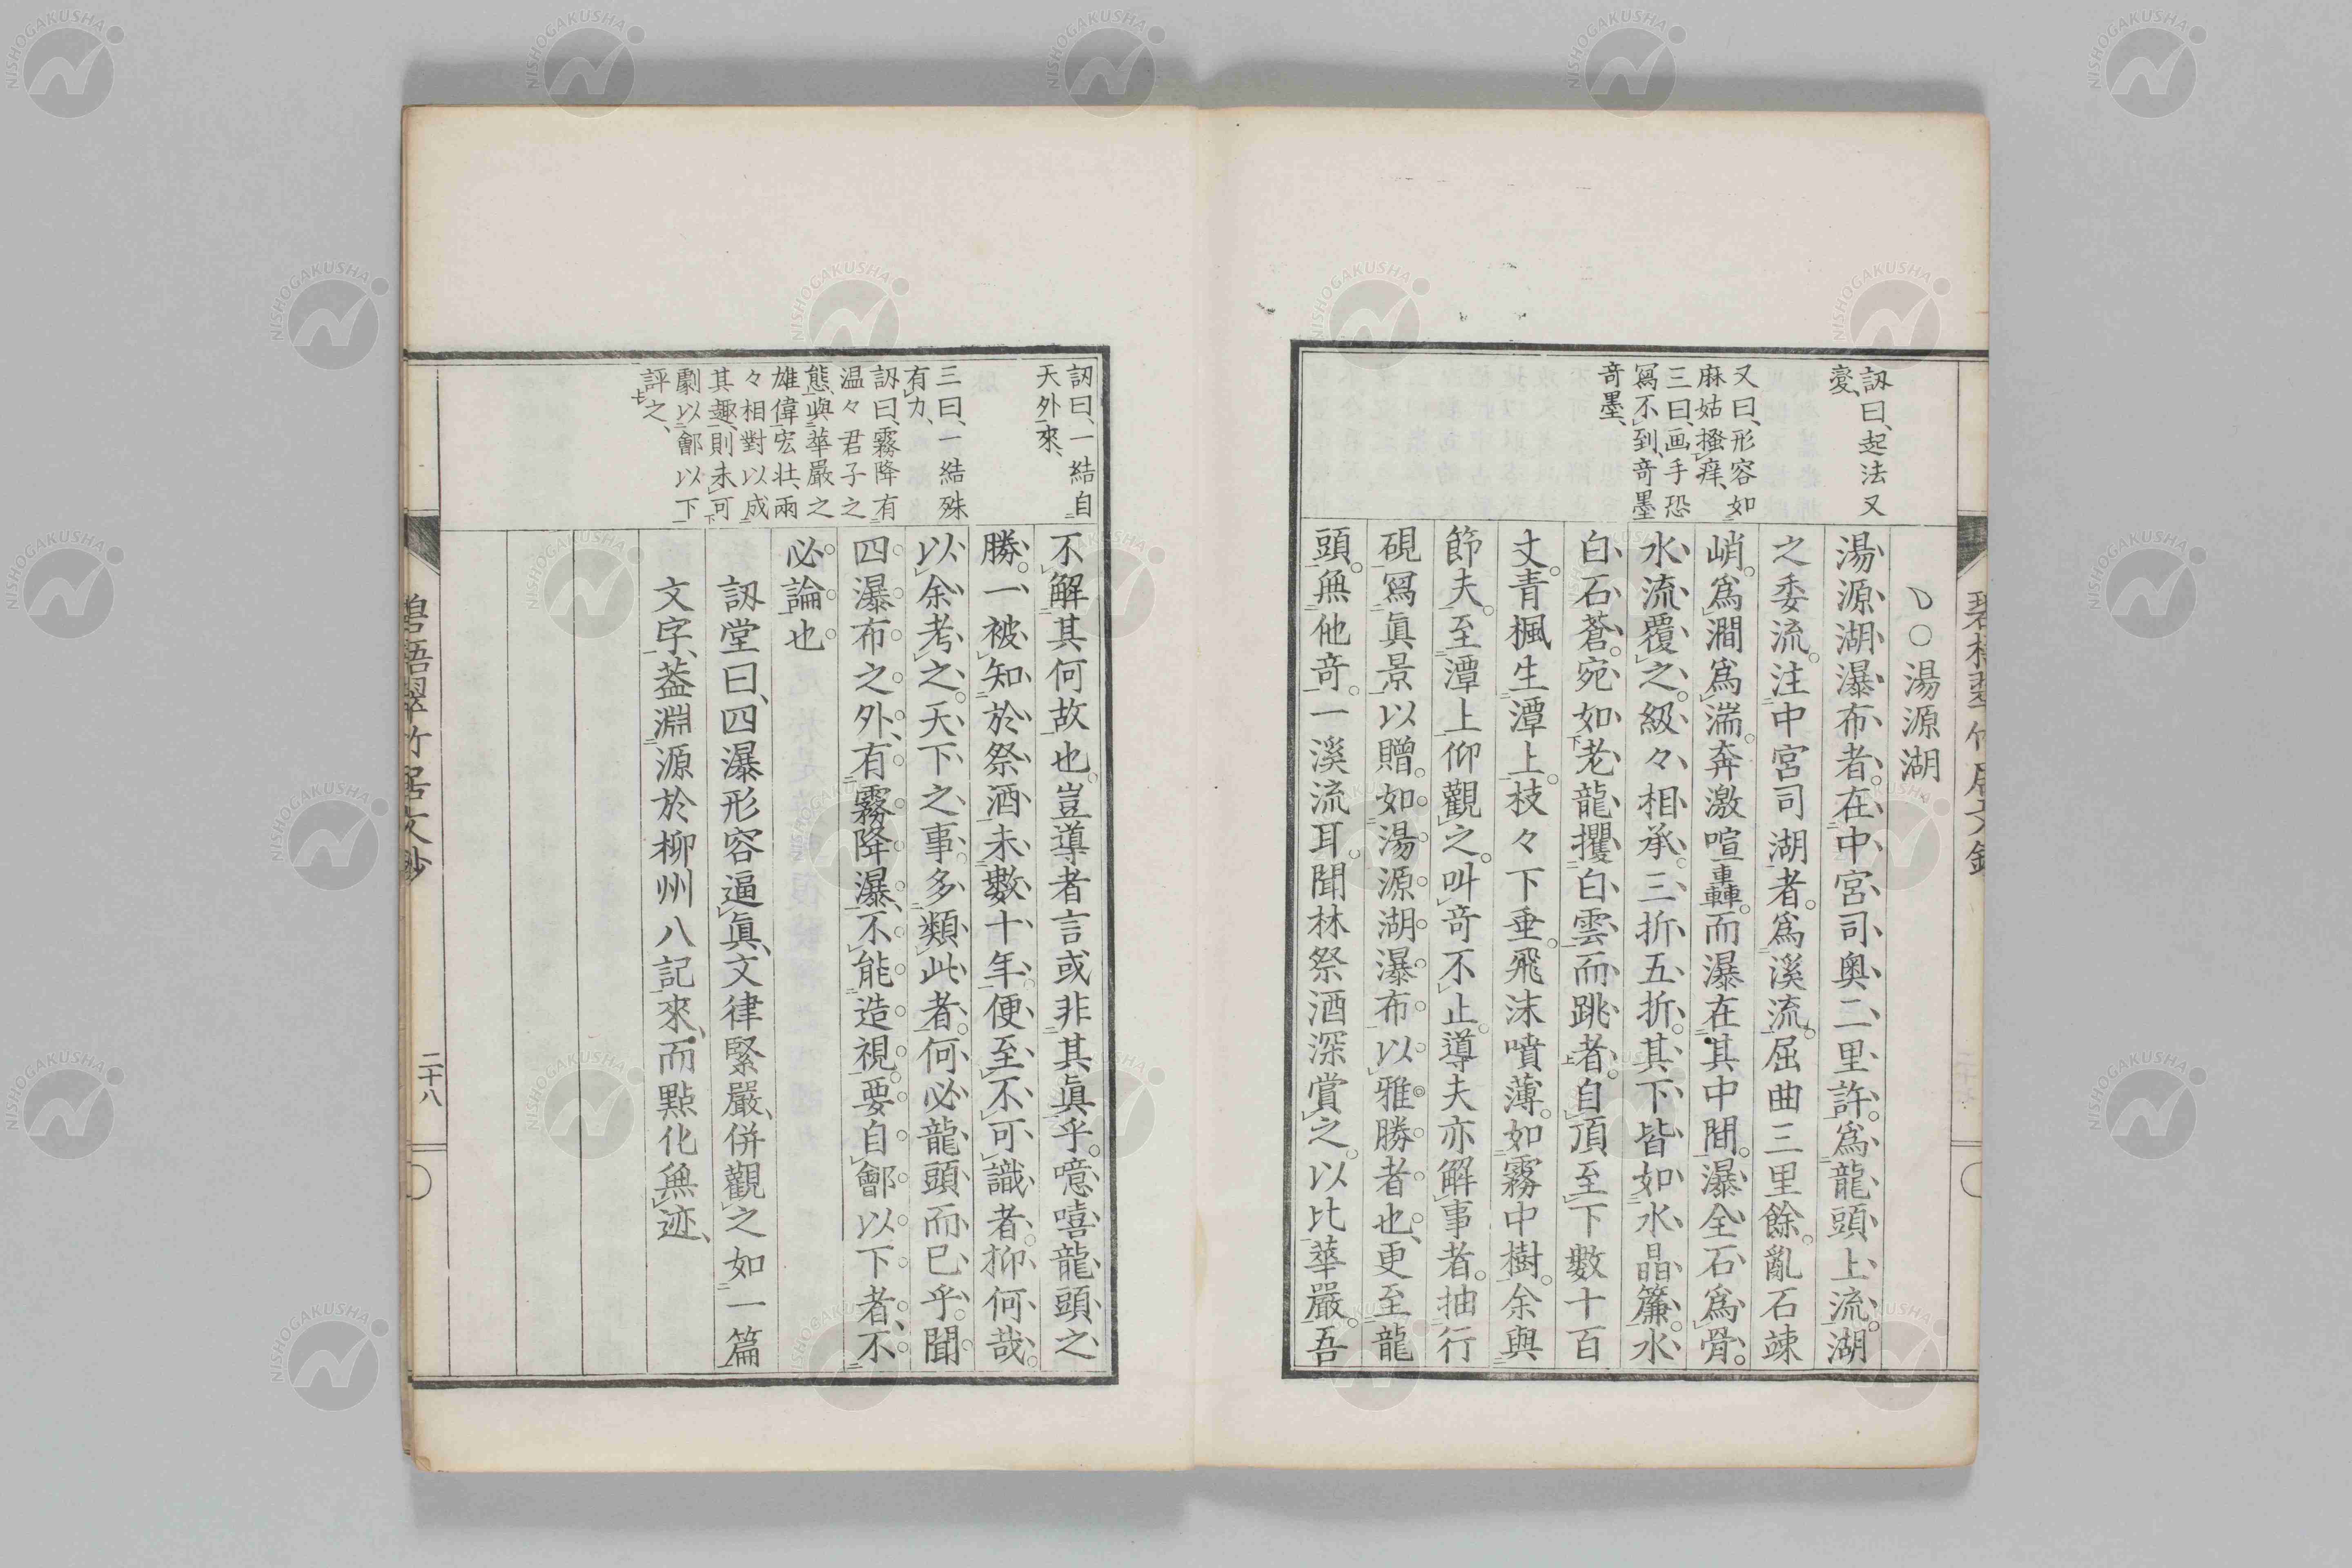 碧梧翠竹居文鈔
訒曰、起法又
憂、
又曰、形容如
麻姑搔痒、
三曰、画手恐
寫不到、奇墨
奇墨、
〇湯源湖
湯源湖瀑布者。在中宮司奥二里許。爲龍頭上流。湖
之委流。注中宮司湖者。爲溪流。屈曲三里餘。亂石竦
峭。爲澗爲湍。奔激喧轟。而瀑在其中間。瀑全石爲骨。
水流覆之。級々相承。三折五折。其下皆如水晶簾。水
白石蒼。宛如老龍攫白雲而跳者。自頂至下數十百
丈。青楓生潭上。枝々下垂。飛沫噴薄。如霧中樹。余與
節夫。至潭上仰觀之。叫奇不止。導夫亦解事者。抽行
硯寫眞景以贈。如湯源湖瀑布。以雅勝者也、更至龍
頭。無他奇。一溪流耳。聞林祭酒深賞之。以比華嚴。吾
訒曰、一結自
天外來、
三曰、一結殊
有力、
訒曰、霧降有
温々君子之
態、與華嚴之
雄偉宏壮、兩
々相對以成
其趣、則未可
劇以鄶以下
評之、
不解其何故也。豈導者言或非其眞乎。噫嘻龍頭之
勝。一被知於祭酒。未數十年。便至不可識者。抑何哉。
以余考之。天下之事。多類此者。何必龍頭而已乎。聞
四瀑布之外、有霧降瀑、不能造視。要自鄶以下者、不
必論也。
訒堂曰、四瀑形容逼眞、文律緊嚴、併觀之如一篇
文字、蓋淵源於柳州八記來、而點化無迹、
碧梧翠竹居文鈔
二十八